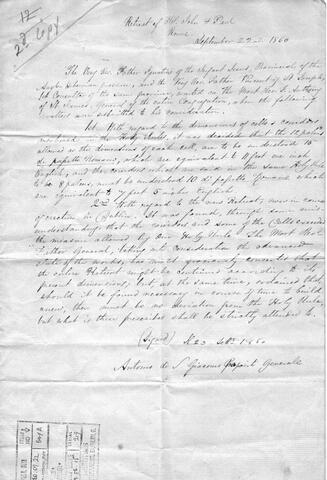 12
2d Copy
Retreat of St. John & Paul
Rome
September 22nd 1860
The Very Rev. Father Ignatius of the Infant Jesus, Provincial of the
Anglo Hibernian province, and the Very Rev. Father Vincent of St. Joseph,
1st Consultor of the same province, waited on the Most Rev. F. Anthony
of St. James, General of the entire Congregation, when the following
matters were submitted to his consideration.
1st. With regard to the dimensions of cells & corridors
it was decided that the 15 palms
allowed as the dimensions of each cell, are to be understood 15
di papetto Romano, which are equivalent to feet one inch
English, and the corridors which are said in the same
to be 8 palms, must be understood 10 di papetto Romano which
are equivalent to 7 feet 5 inches English.
2nd With regard to the new Retreat, now in course
of erection in Dublin. It was found, through some mis-
understandings that the corridors and some of the Cells exceeded
the measure allowed by Our Holy Rule. The Most Rev.
Father General, taking into Consideration the advanced
state of the works, has most graciously conceded that
the entire Retreat might be continued according to its
present dimensions, but, at the same time, ordained that
should it be found necessary in course of time to build
anew, there must be no deviation from the Holy Rule,
but what is there prescribed shall be strictly attended to.
(Signed) 23 Sept. 1860
Antonio di S. Giacomo Prepost Generale